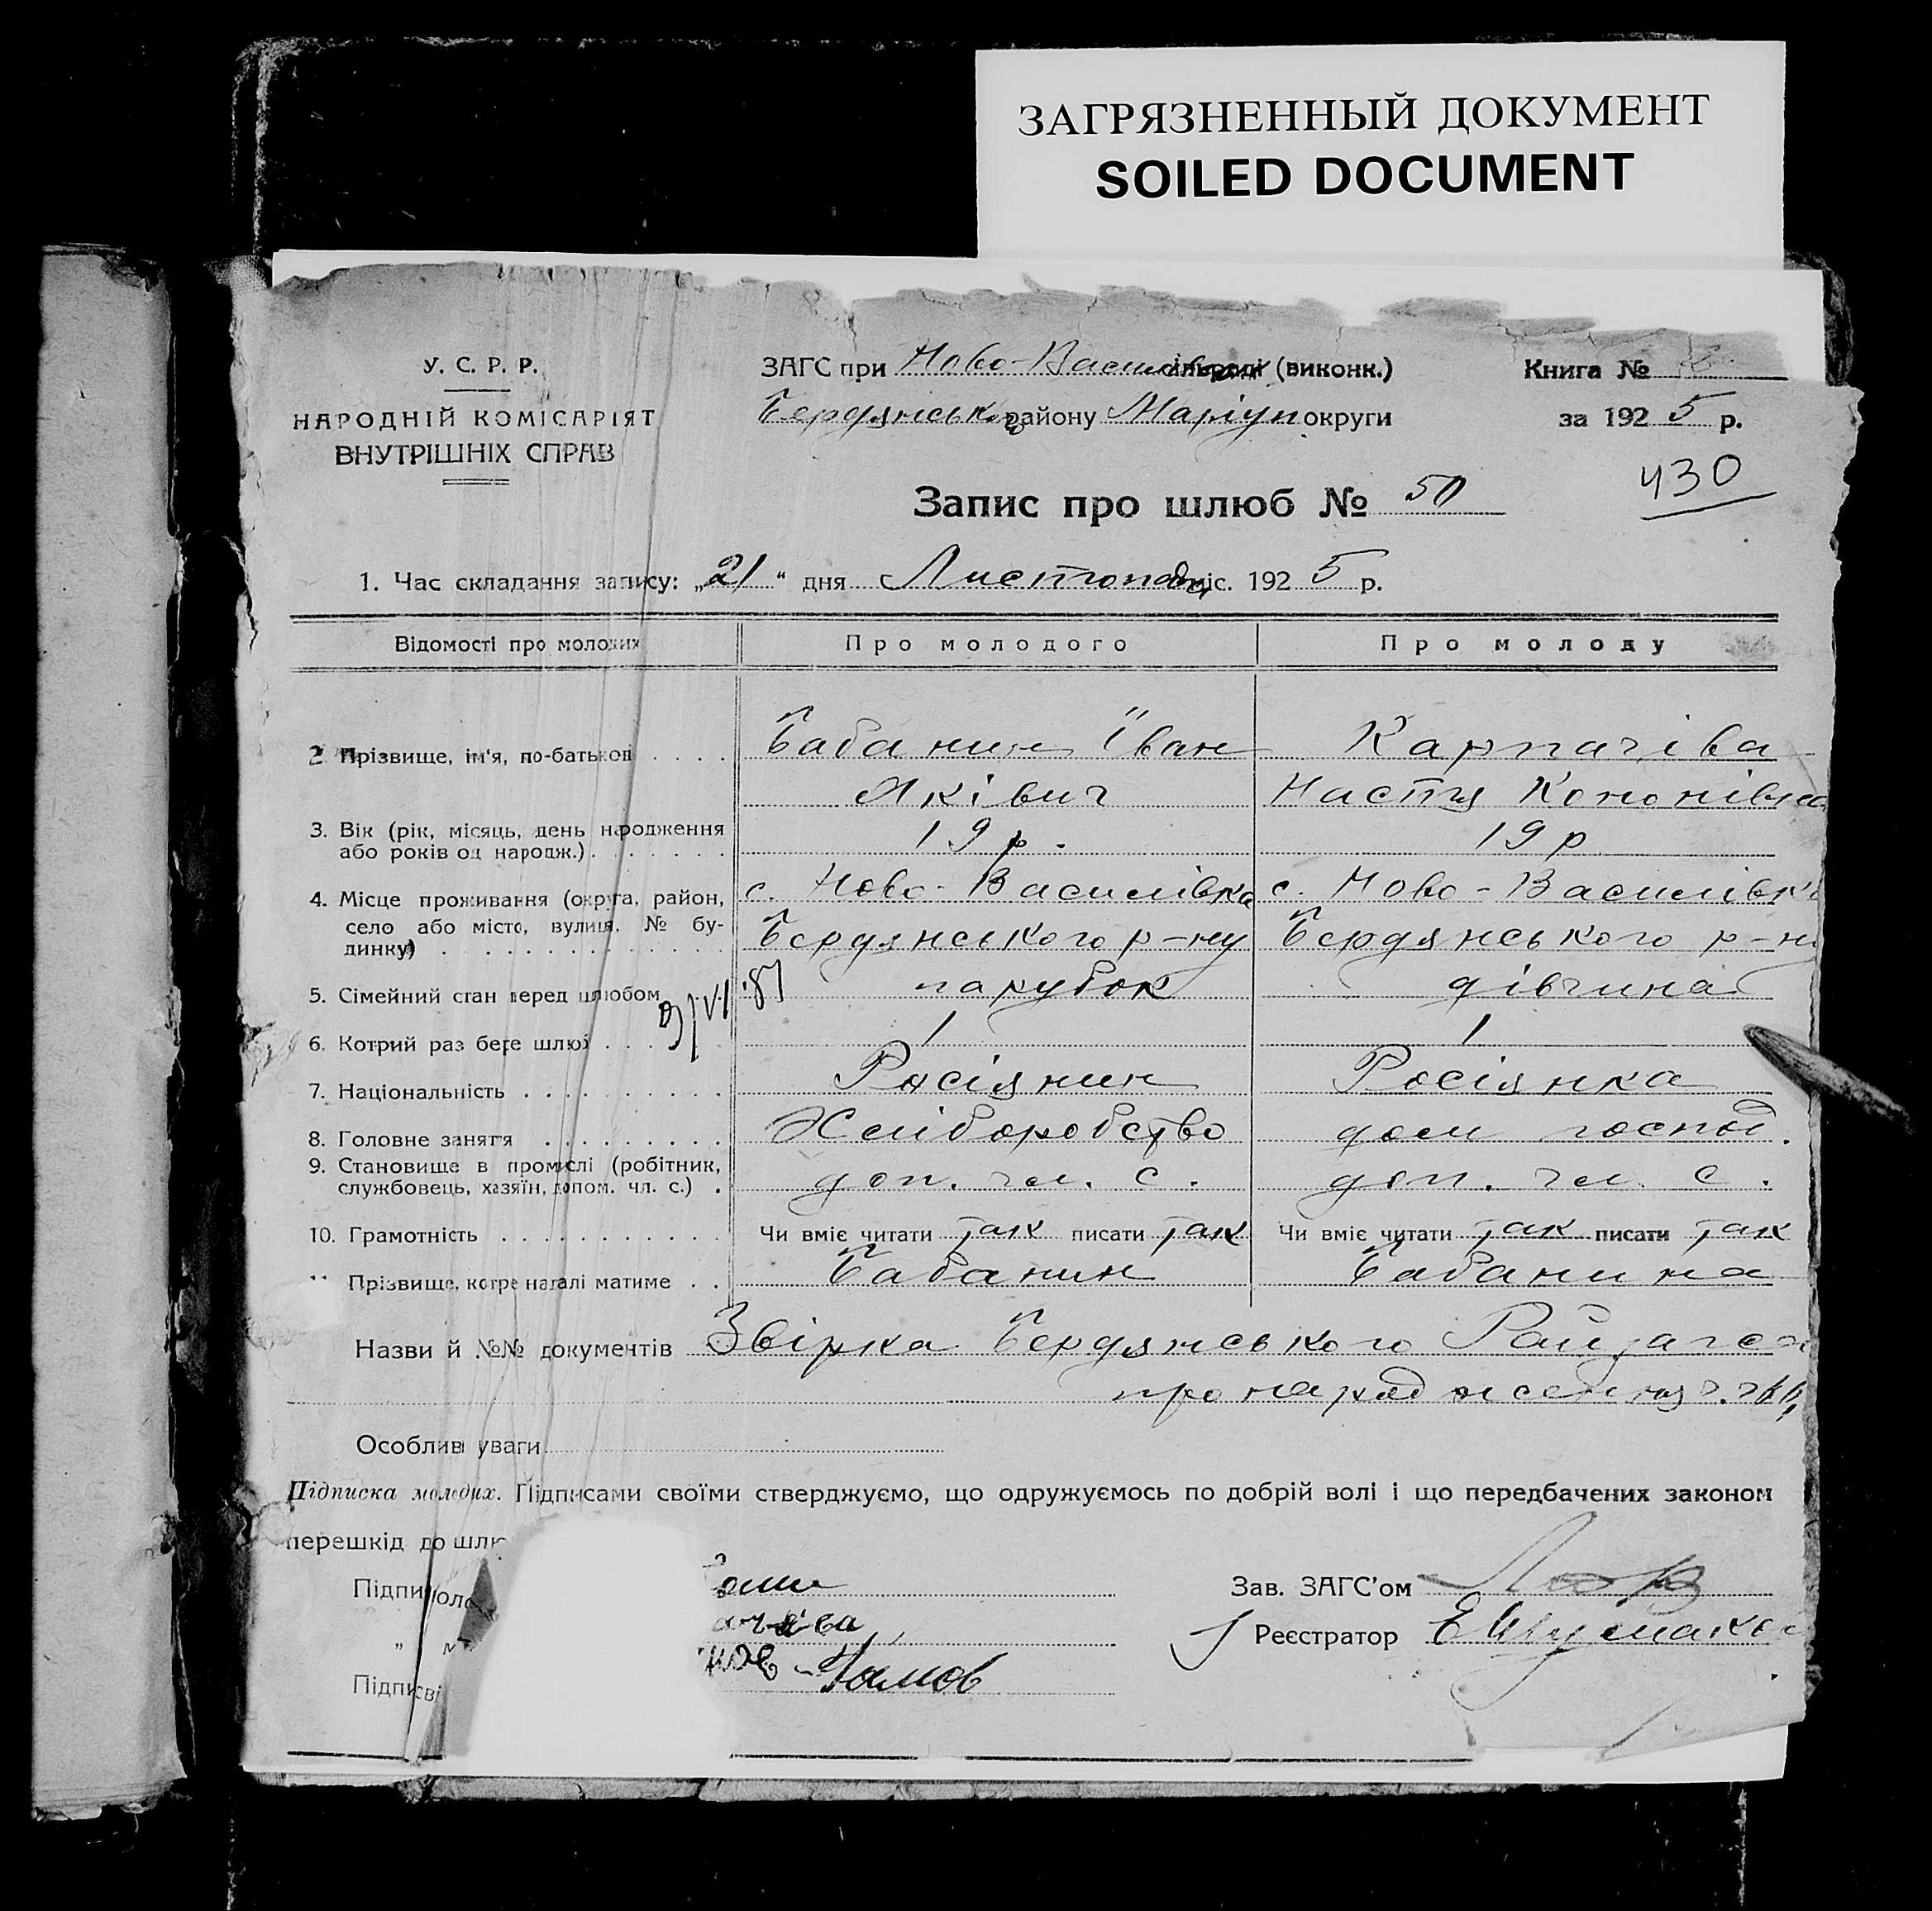 ЗАГРЯЗНЕННЫЙ ДОКУМЕНТ
SOILED DOCUMENT
У. С. Р. Р.
НАРОДНІЙ КОМІСАРІЯТ
ВНУТРІШНІХ СПРАВ
ЗАГС при Ново-Василівськ сільраді (виконк.)
Бердянського району Маріуп округи
Книга №
за 1925 р.
430
Запис про шлюб № 50
1. Час складання запису: „21“ дня Листопада міс. 1925 р.
Відомості про молодих Про молодого Про молоду
2. Прізвище, ім'я, по-батькові . . . . Бабанин Іван Карпачіва
Яківич Настя Кононівна
3. Вік (рік, місяць, день народження
або років од народж.) . . . . . . 19 р. 19 р
4. Місце проживання (округа, район, с. Ново-Василівка с. Ново-Василівка
село або місто, вулиця, № бу-
динку) . . . . . . . . . . . Бердянського р-ну Бердянського р-ну
5. Сімейний стан перед шлюбом парубок дівчина
6. Котрий раз бере шлюб . . . 1 1
7. Національність . . . . . . . . . . Росіянин Росіянка
8. Головне заняття . . . . . . . . . Хліборобство дом господ.
9. Становище в промислі (робітник,
службовець, хазяїн, допом. чл. с.) . доп. чл. с. доп. чл. с.
10. Грамотність . . . . . . . . . . . Чи вміє читати так писати так Чи вміє читати так писати так
Прізвище, котре надалі матиме . . Бабанин Бабанина
Назви й №№ документів Звірка Бердянського Райзагса
про народження
Особливі уваги
Підписка молодих. Підписами своїми стверджуємо, що одружуємось по добрій волі і що передбачених законом
перешкід до шлю
Підпи
Зав. ЗАГС'ом
„ ачіва
Реєстратор
Підписи